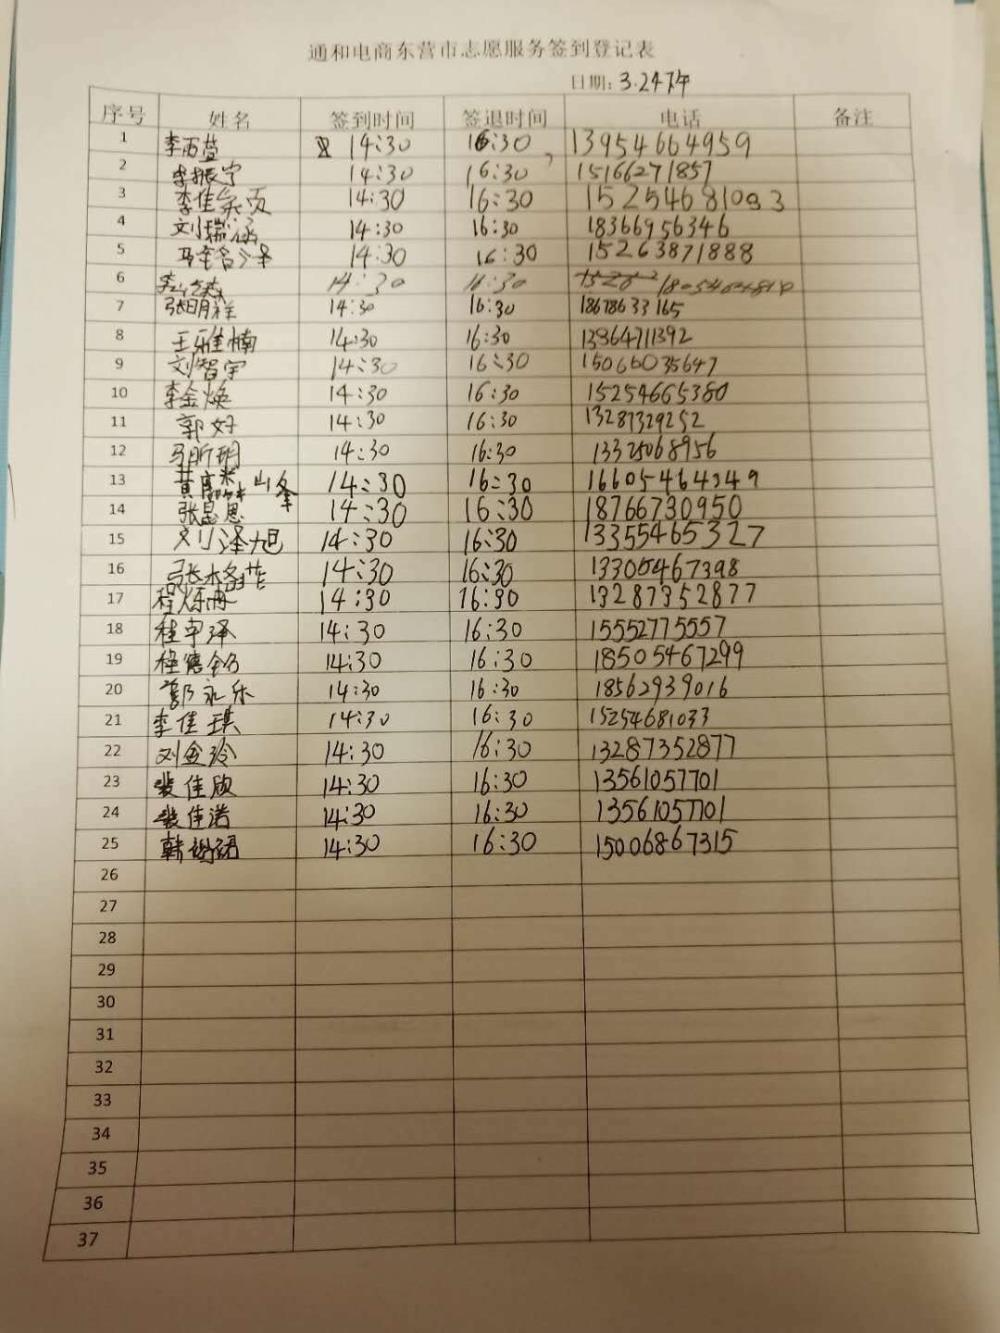 通和电商东营市志愿服务签到登记表
日期: 3.24下午
序号 姓名 签到时间 签退时间 电话 备注
1 李西萱 14:30 16:30 13954664959
2 李振宁 14:30 16:30 15166271857
3 李佳 14:30 16:30 15254681093
4 刘瑞涵 14:30 16:30 18366956346
5 14:30 16:30 15263871888
6 14:30 16:30
7 张明祥 14:30 16:30 18678633165
8 王雅楠 14:30 16:30 13964711392
9 刘智宇 14:30 16:30 15066035647
10 李金焕 14:30 16:30 15254665380
11 郭好 14:30 16:30 13287329252
12 马昕玥 14:30 16:30
13 14:30 16:30 16605464949
14 张思思 14:30 16:30 18766730950
15 刘泽旭 14:30 16:30 13355465327
16 14:30 16:30 13305467398
17 程烁冉 14:30 16:30 13287352877
18 程宇泽 14:30 16:30 15552775557
19 14:30 16:30 18505467299
20 郭永乐 14:30 16:30 18562939016
21 李佳琪 14:30 16:30 15254681033
22 刘金玲 14:30 16:30 13287352877
23 裴佳欣 14:30 16:30 13561057701
24 裴佳诺 14:30 16:30 13561057701
25 韩 14:30 16:30 15006867315
26
27
28
29
30
31
32
33
34
35
36
37